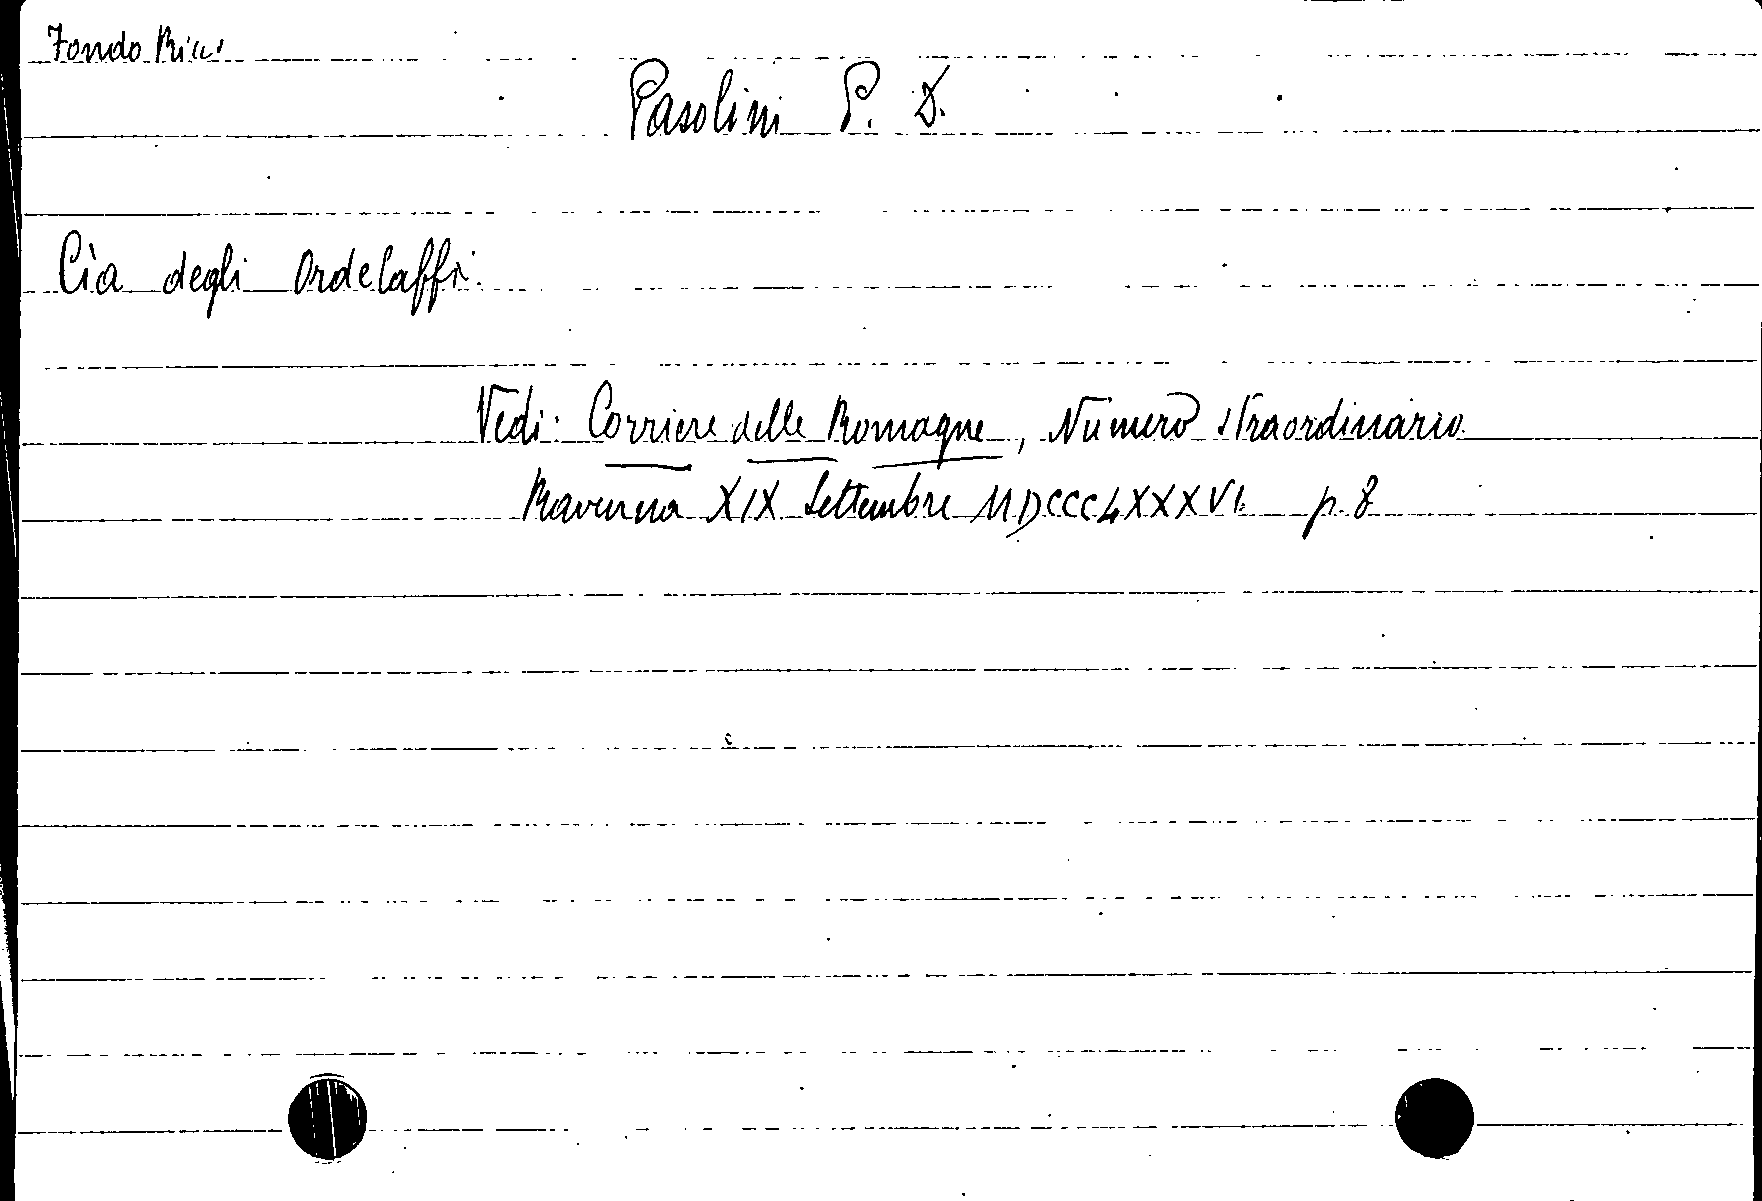 Fondo Ricci
Pasolini P. D.
Cia degli Ordelaffi.
Vedi: Corriere delle Romagne, Numero straordinario
Ravenna XIX Settembre MDCCCLXXXVI. p. 8